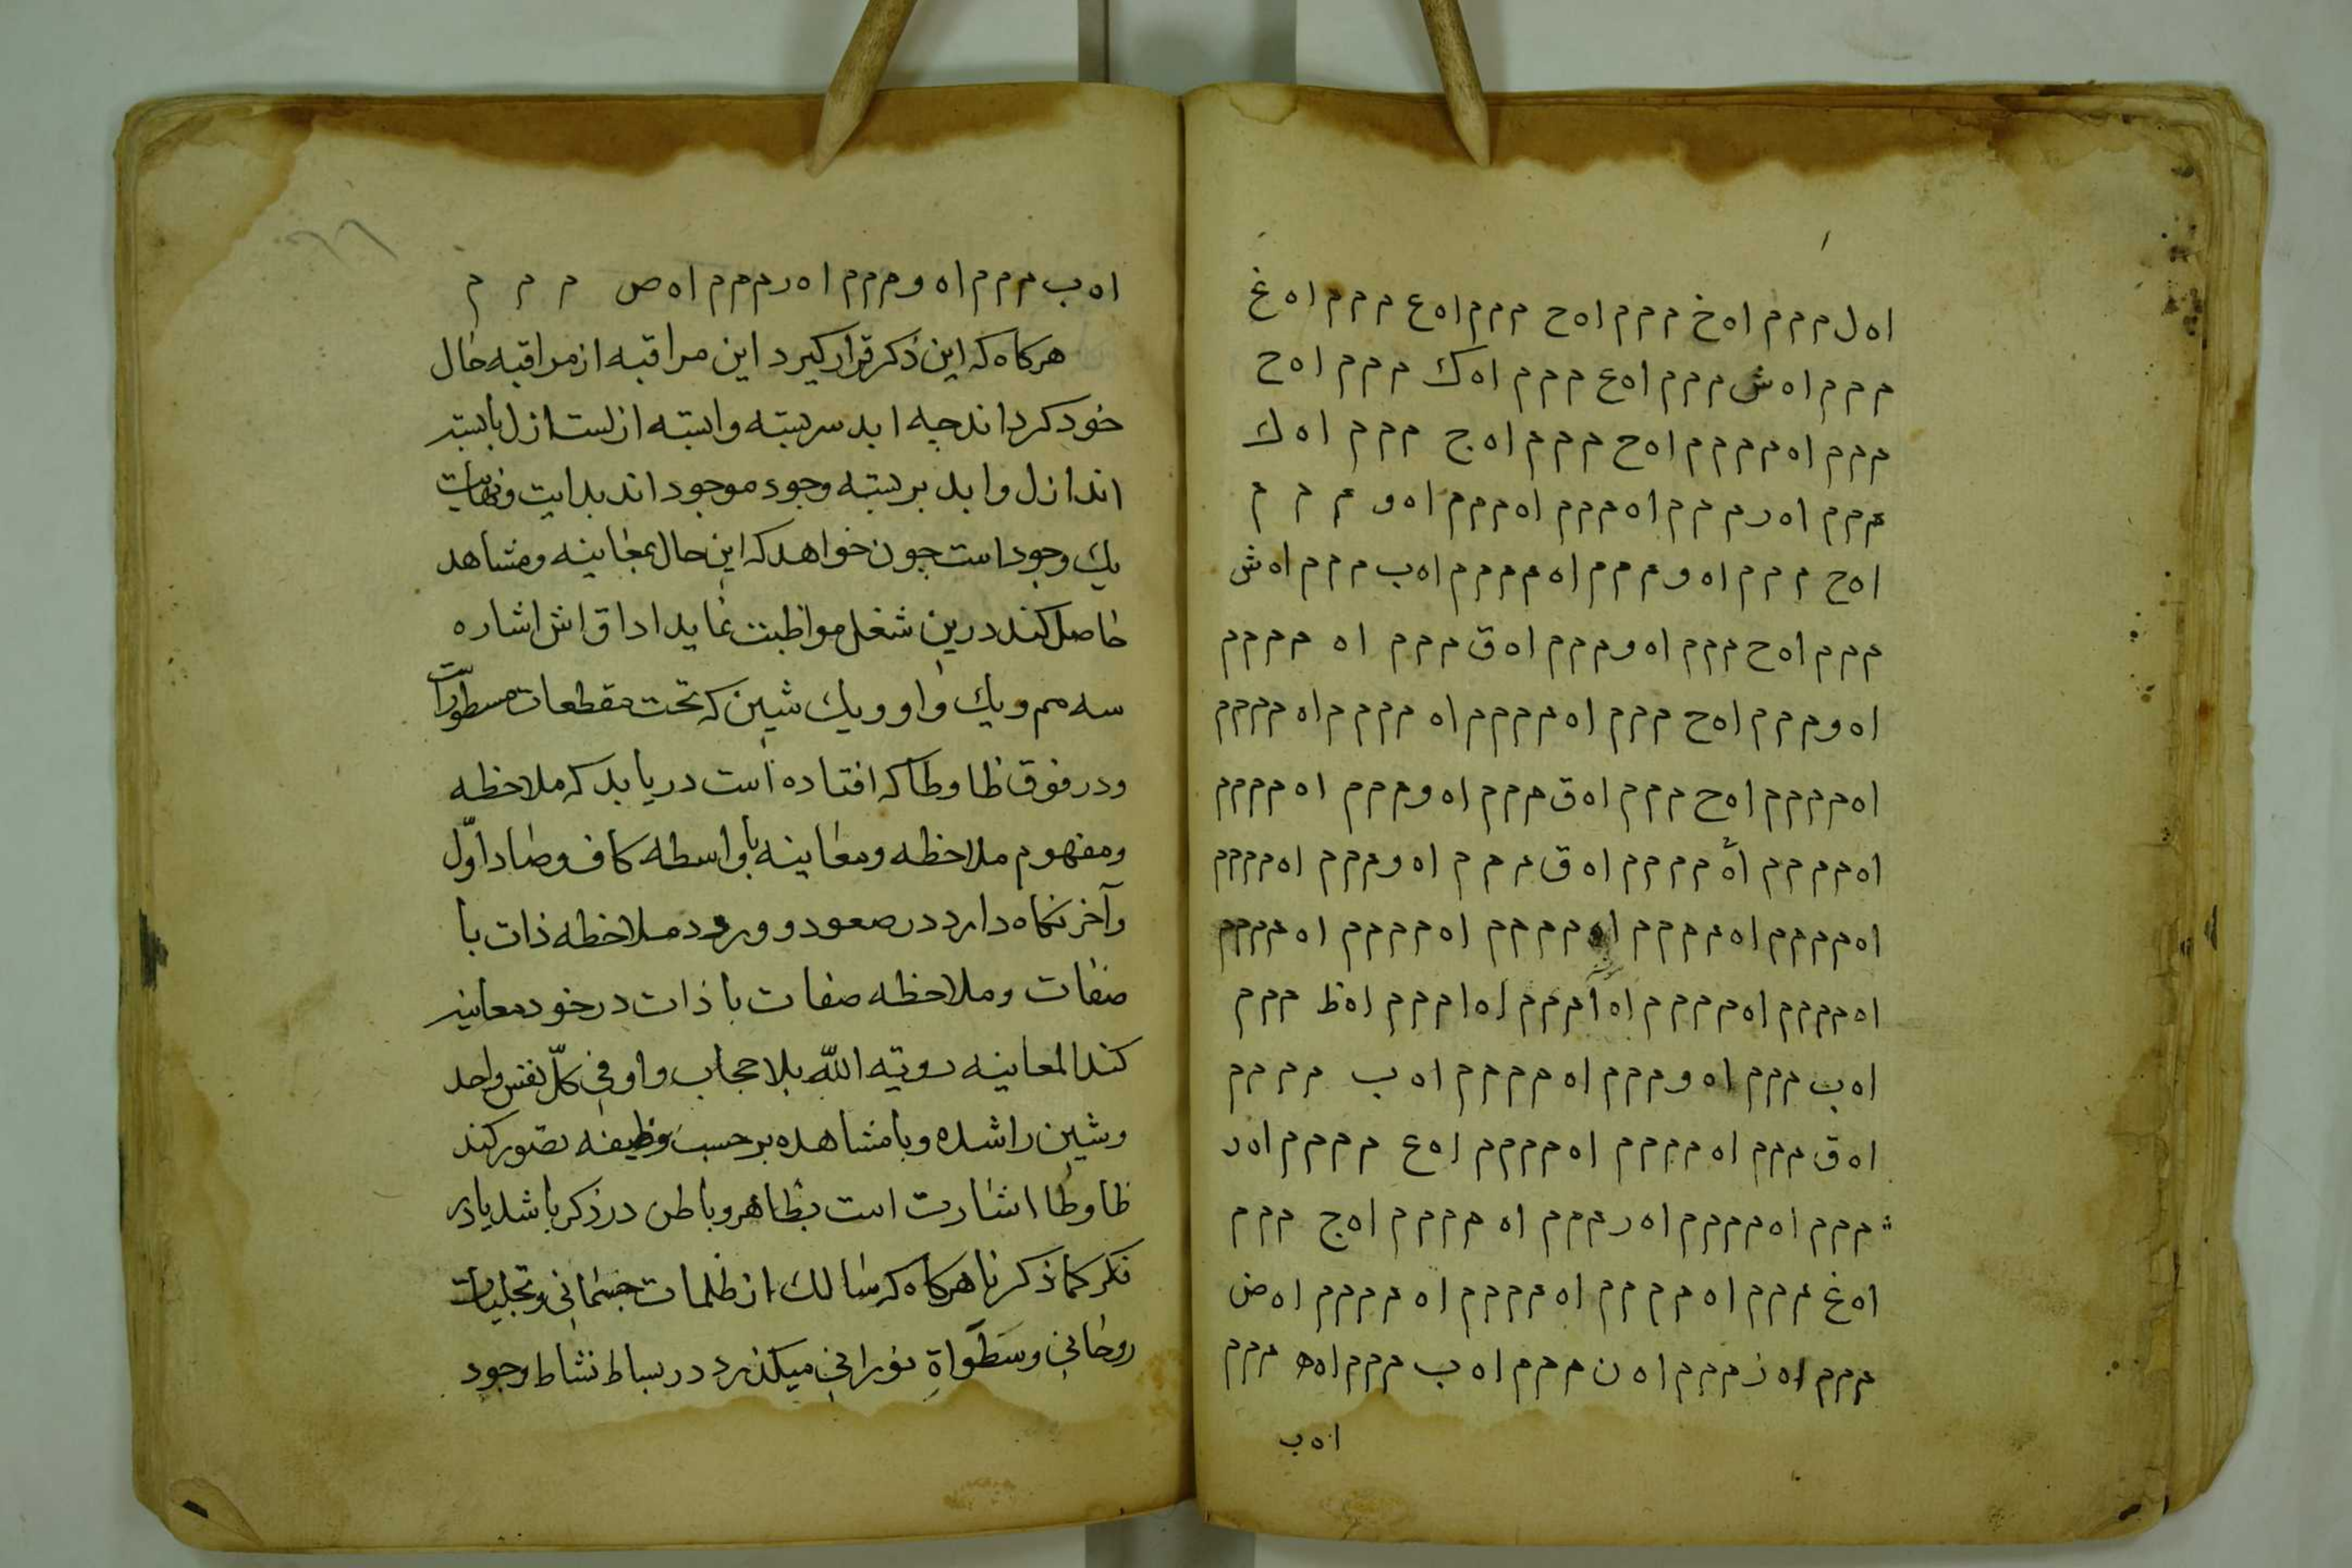 ا ه ل م م م ا ه خ م م م ا ه ح م م م ا ه ع م م م ا ه غ
م م م ا ه ش م م م ا ه ع م م م ا ه ك م م م ا ه ح
م م م ا ه م م م م ا ه ح م م م ا ه ج م م م ا ه ك
م م م ا ه ر م م م ا ه م م م ا ه م م م ا ه و م م م
ا ه ح م م م ا ه و م م م ا ه م م م م ا ه ب م م م ا ه ش
م م م ا ه ح م م م ا ه و م م م ا ه ق م م م ا ه م م م م
ا ه و م م م ا ه ح م م م ا ه م م م م ا ه م م م م ا ه م م م م
ا ه م م م م ا ه ح م م م ا ه ق م م م ا ه و م م م ا ه م م م م
ا ه م م م م ا ه م م م م ا ه ق م م م ا ه و م م م ا ه م م م م
ا ه م م م م ا ه م م م م ا ه م م م م ا ه م م م م ا ه م م م م
ا ه م م م م ا ه م م م م ا ه ا م م م ا ه ا م م م ا ه ظ م م م
ا ه ب م م م ا ه و م م م ا ه م م م م ا ه ب م م م م
ا ه ق م م م ا ه م م م م ا ه م م م م ا ه ع م م م م ا ه ر
م م م ا ه م م م م ا ه ر م م م ا ه م م م م ا ه ج م م م
ا ه غ م م م ا ه م م م م ا ه م م م م ا ه م م م م ا ه ض
م م م ا ه ز م م م ا ه ن م م م ا ه ب م م م ا ه ه م م م
ا ه ب
ا ه ب م م م ا ه و م م م ا ه ر م م م ا ه ص م م م
هركاه كه اين ذكر قرار كيرد اين مراقبه از مراقبه حال
خود كرداند چه ابد سربسته وابسته ازلست ازل بابسته
اند ازل و ابد بربسته وجود موجود اند بدايت و نهايت
يك وجود است چون خواهد كه اين حال بمعاينه و مشاهد
حاصل كند درين شغل مواظبت نمايد اداق اش اشاره
سه مم و يك واو و يك شين كه تحت مقطعات مسطورات
و در فوق ظا و طا كه افتاده است دريابد كه ملاحظه
و مفهوم ملاحظه و معاينه با واسطه كاف و صاد اوّل
و آخر نكاه دارد در صعود و ورود ملاحظه ذات با
صفات و ملاحظه صفات با ذات در خود معاينه
كند المعاينه رويّه اللّه بلا حجاب واو فى كلّ نفس واحد
و شين را شده و با مشاهده بر حسب وظيفه تصوّر كند
ظا و طا اشارت است بظاهر و باطن در ذكر باشد يا در
فكر كما ذكرنا هركاه كه سالك از ظلمات جسمانى و تجليات
روحانى و سَطَواةِ نورانى ميكذرد در بساط نشاط وجود